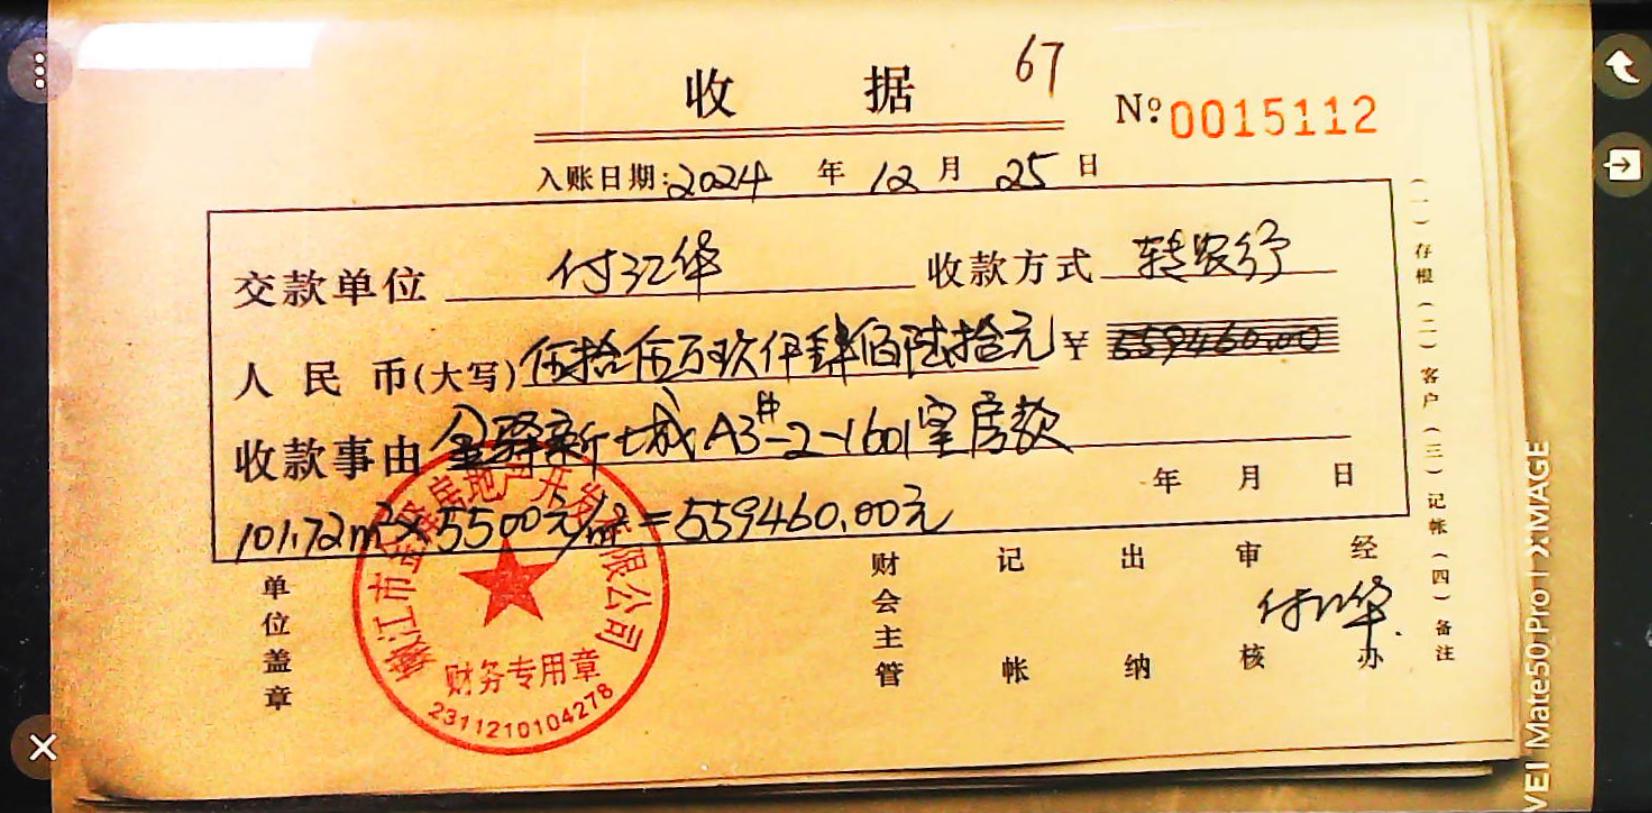 收 据 67
№ 0015112
入账日期:2024 年 12 月 25 日
交款单位 付江华 收款方式 转农行
人民币(大写) 伍拾伍万玖仟肆佰陆拾元 ¥ 559460.00
收款事由 金驿新城A3#-2-1601室房款
年 月 日
101.72m²×5500元/m²=559460.00元
单位盖章 财会主管 记帐 出纳 审核 经办
付江华
嫩江市金驿房地产开发有限公司
财务专用章
2311210104278
(一)存根(二)客户(三)记帐(四)备注
VEI Mate50 Pro | XMAGE